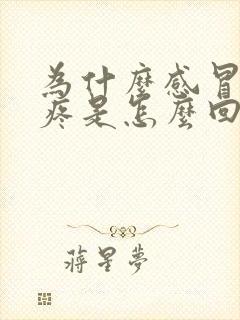 為什麼感冒
疼是怎麼回
蔣星夢